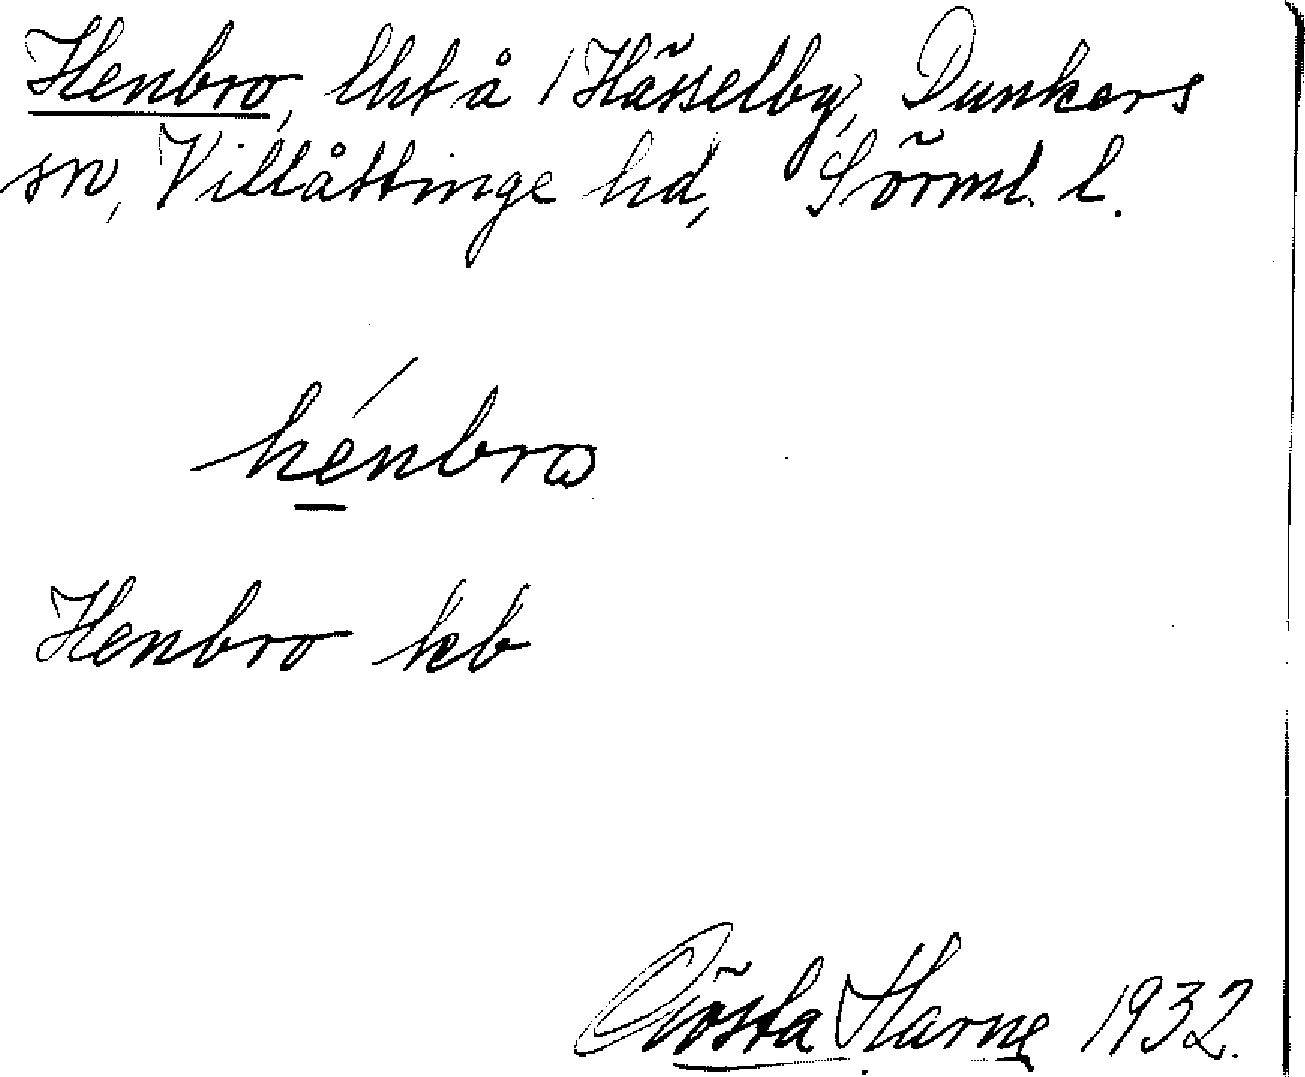 Henbro, lht å 1 Hässelby, Dunkers
sn, Villåttinge hd, Sörml. l.
hénbro
Henbro kb
Gösta Harne 1932.